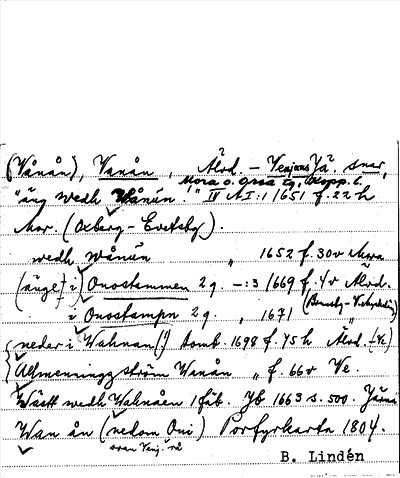 (Vånån), Vanån, Älvd. – Venjans Jä. sner,
Mora o. Orsa tg, Kopp. l.
"äng wedh Wånån." IV A I:1 1651 f. 22 h
Mor. (Oxberg – Evertsbg).
wedh wånån " 1652 f. 30v Mora
(änget) i) Onostammen 2 g. –:3 1669 f. 4v Älvd.
i Onostampn 2 g. , 1671
neder i Wahnan (!) Tomb. 1698 f. 75 h Älvd.
Allmenninggzström Wanån " f. 66v Ve.
Wästt wedh Wahnåen 1 fäb. Jb 1663 s. 500. Järna
Wan ån (nedom Oni) Porfyrkarta 1804.
ovan Venj.
B. Lindén